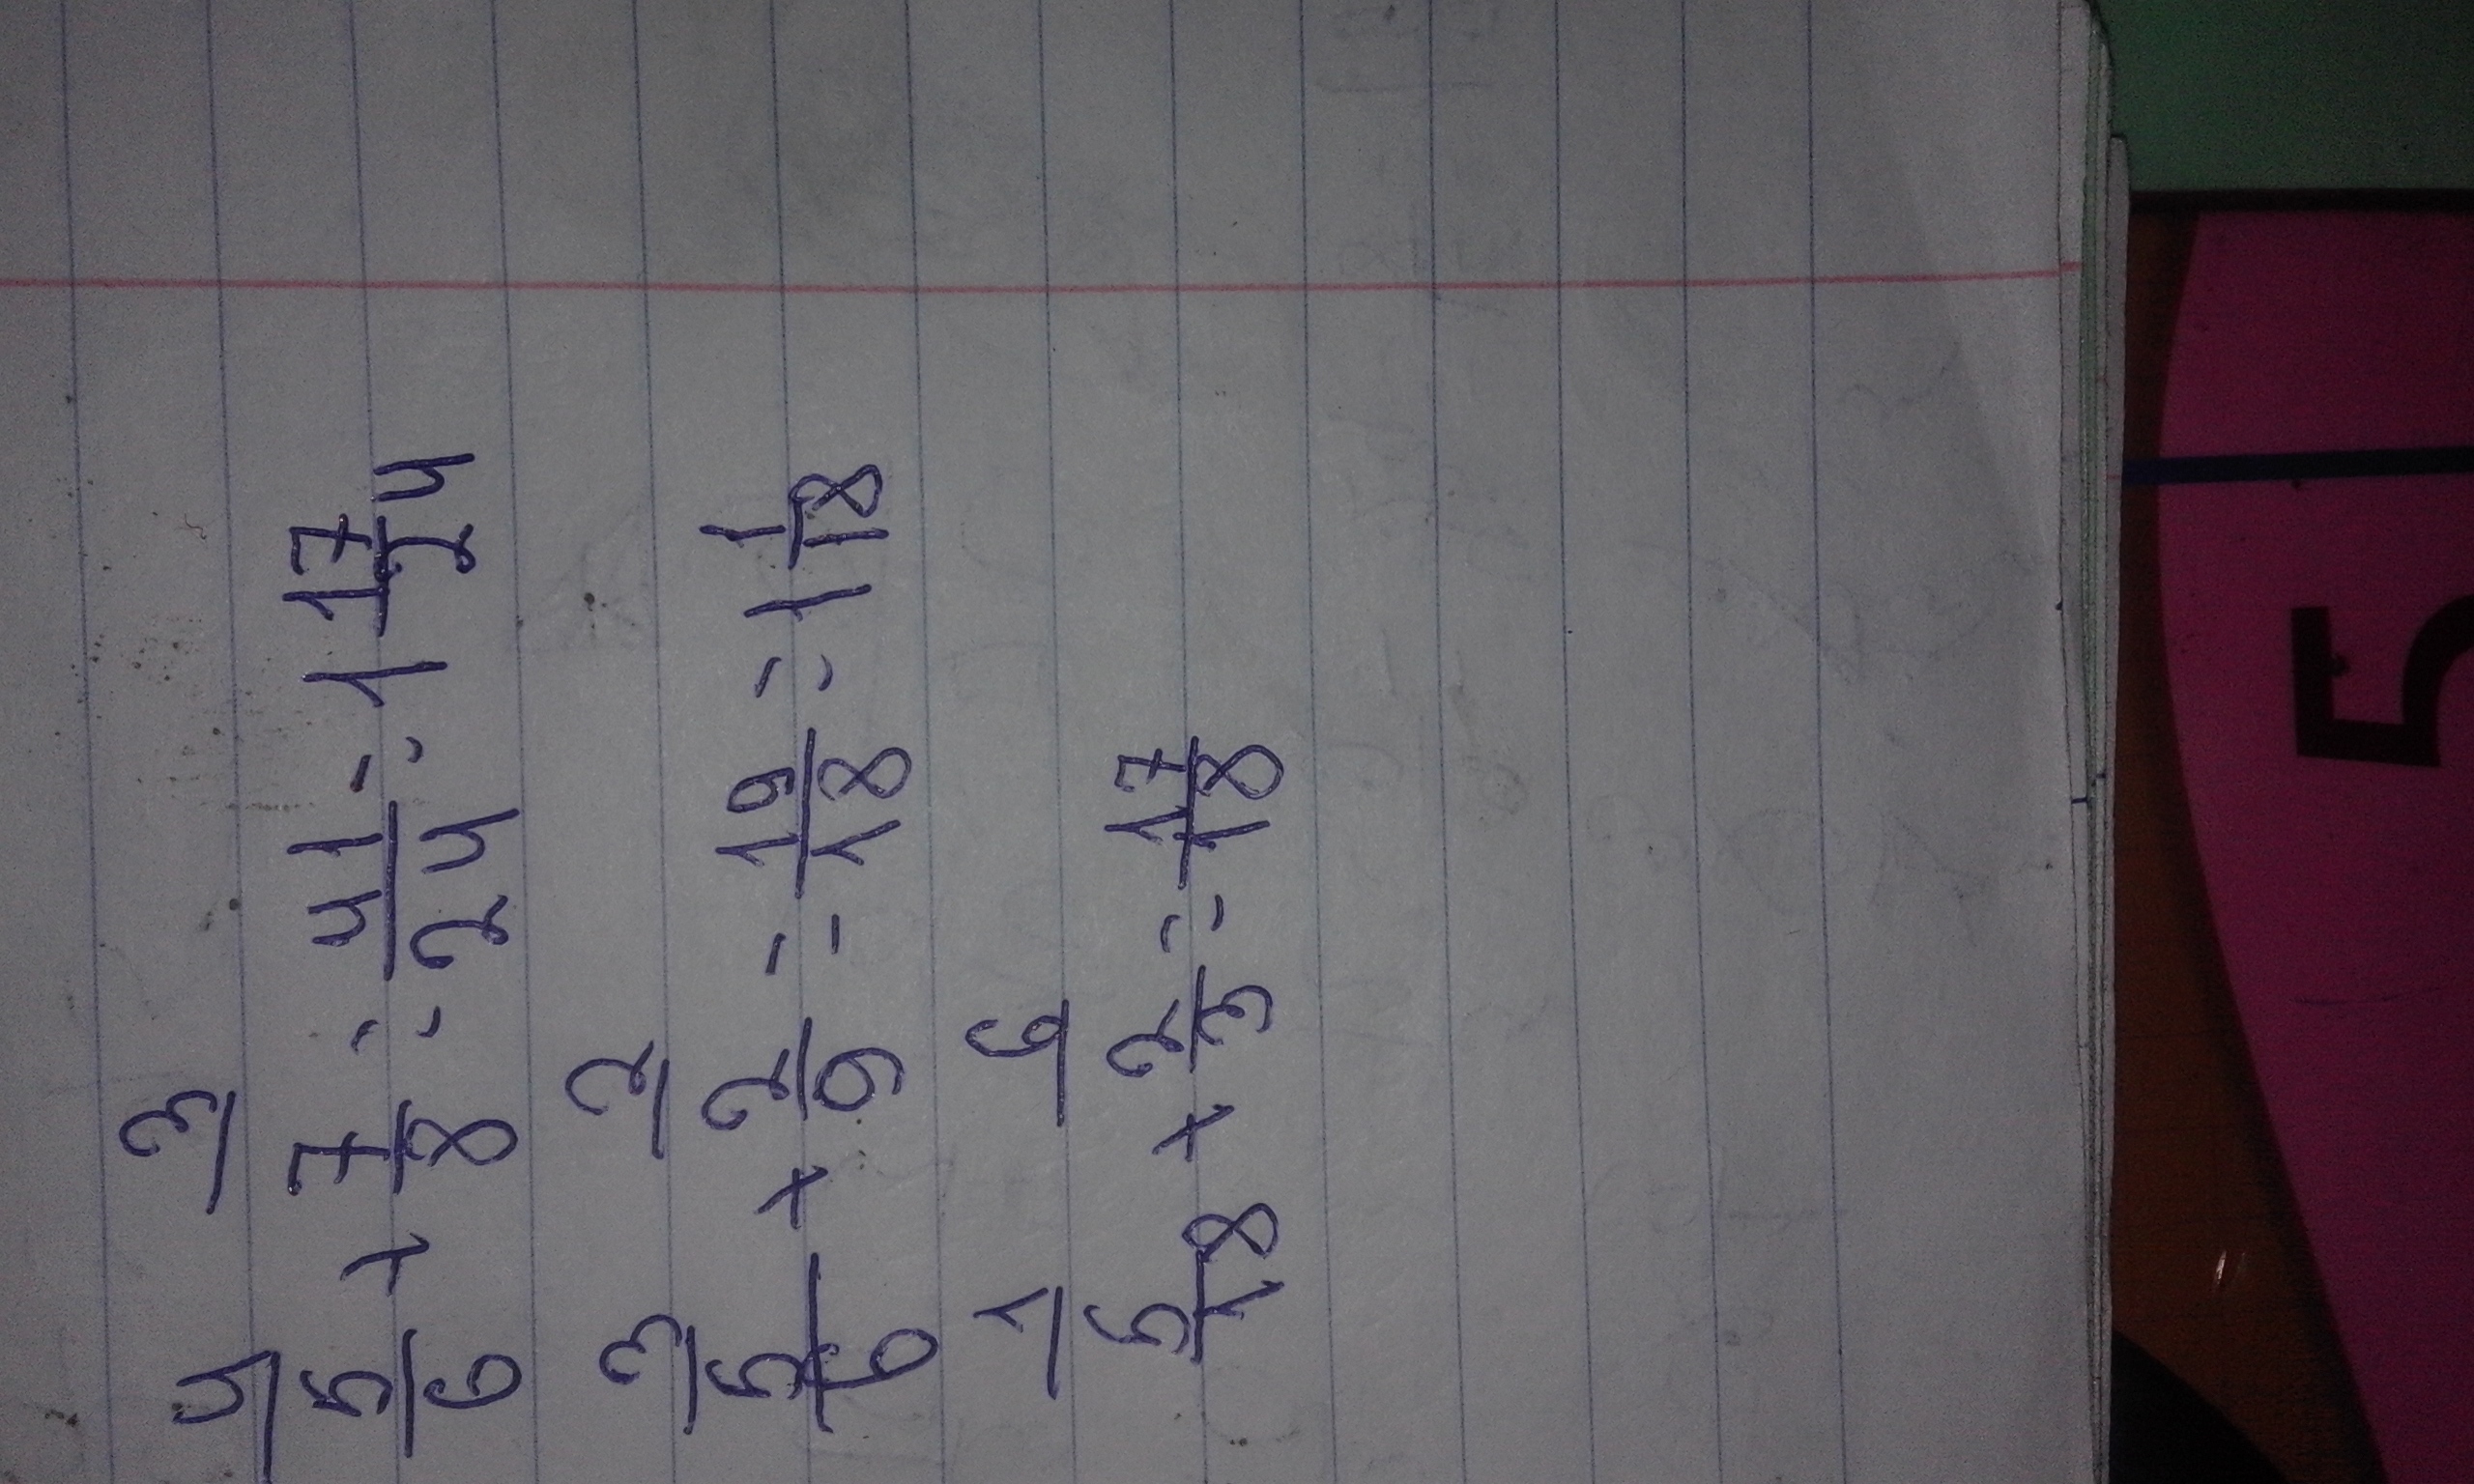 4 3
5/6 + 7/8 = 41/24 = 1 17/24
3 2
5/6 + 2/9 = 19/18 = 1 1/18
1 6
5/18 + 2/3 = 17/18
5